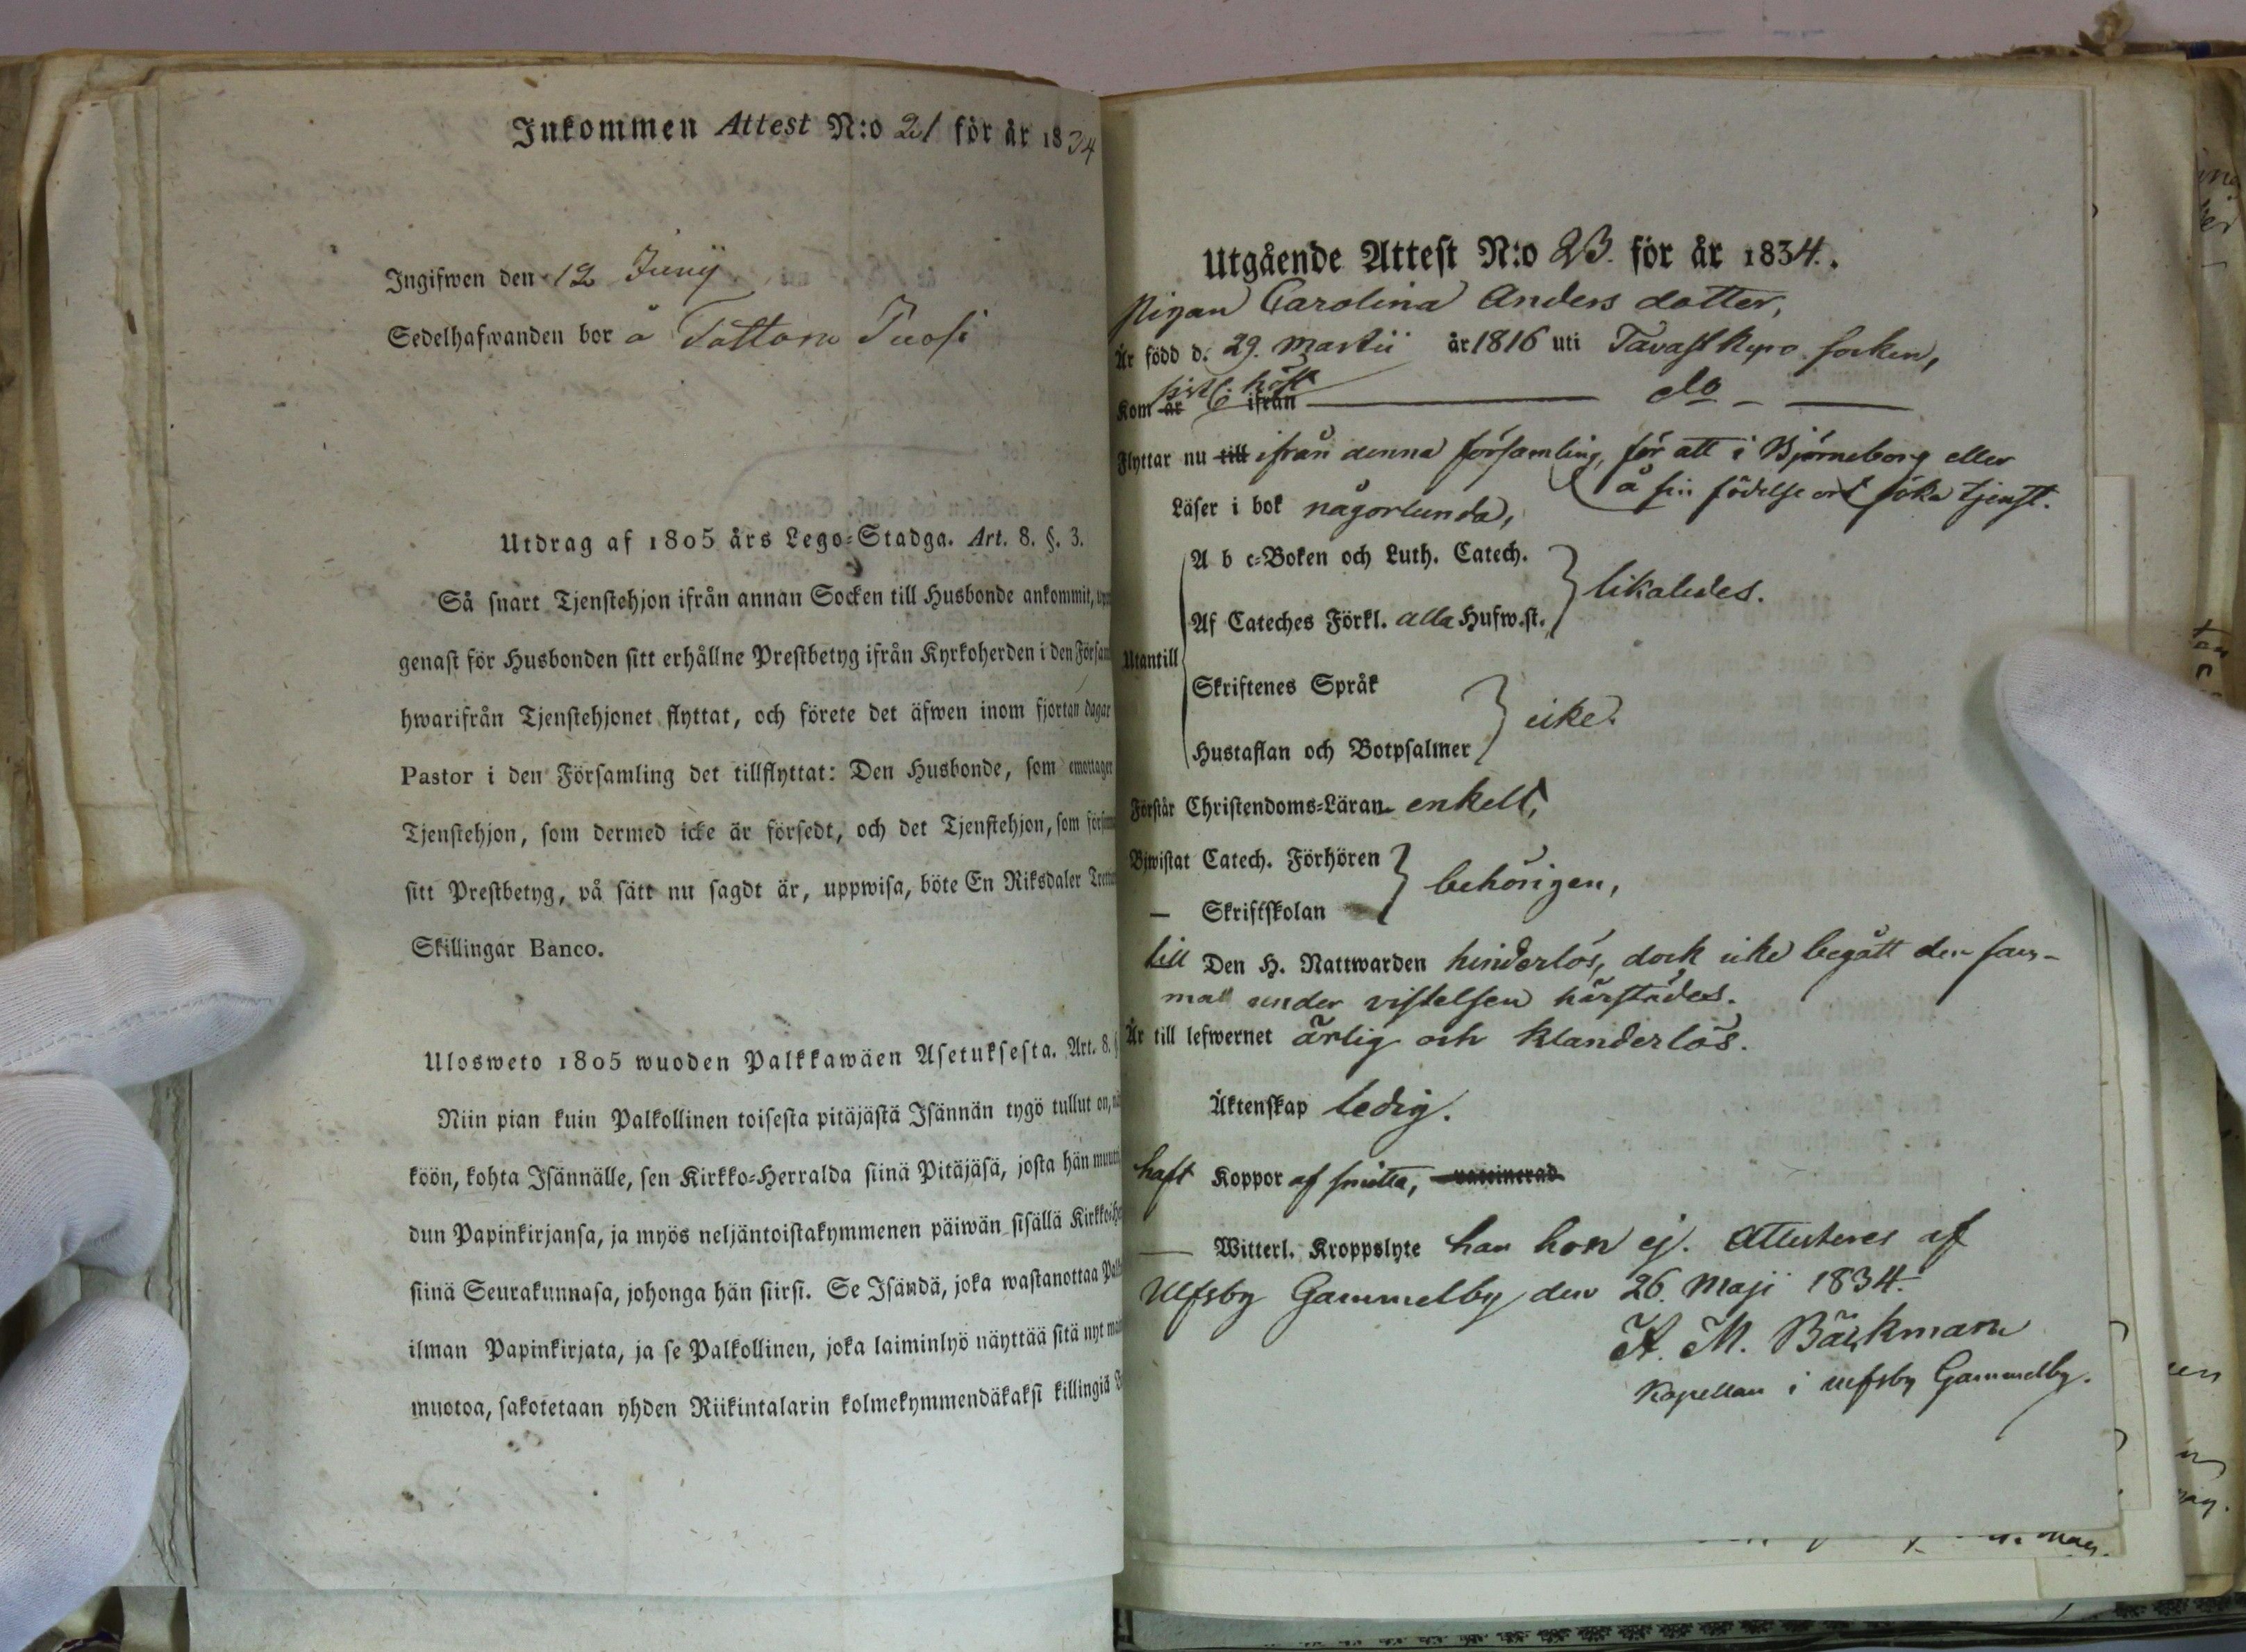 Inkommen Attest N:o 21 för år 1834
Ingifwen den 12 Junÿ
Sedelhafwanden bor å
Utdrag af 1805 års Lego-Stadga. Art. 8. §. 3.
Så snart Tjenstehjon ifrån annan Socken till Husbonde ankommit,
genast för Husbonden sitt erhållne Prestbetyg ifrån Kyrkoherden i den Försam
hwarifrån Tjenstehjonet flyttat, och förete det äfwen inom fjortan dagar
Pastor i den Församling det tillflyttat: Den Husbonde, som emottager
Tjenstehjon, som dermed icke är försedt, och det Tjenstehjon, som försum
sitt Prestbetyg, på sätt nu sagdt är, uppwisa, böte En Riksdaler
Skillingar Banco.
Ulosweto 1805 wuoden Palkkawäen Asetuksesta. Art. 8. §
Niin pian kuin Palkollinen toisesta pitäjästä Isännän tygö tullut on,
köön, kohta Isännälle, sen Kirkko-Herralda siinä Pitäjäsä, josta hän muutti
dun Papinkirjansa, ja myös neljäntoistakymmenen päiwän sisällä Kirkko-He
siinä Seurakunnasa, johonga hän siirsi. Se Isändä, joka wastanottaa Palk
ilman Papinkirjata, ja se Palkollinen, joka laiminlyö näyttää sitä nyt
muotoa, sakotetaan yhden Riikintalarin kolmekymmendäkaksi killingiä
Utgående Attest N:o 23. för år 1834.
Pigan Carolina Anders dotter,
Är född d. 29. Martii år 1816 uti Tavastkyro socken,
sistl. höst
Kom år ifrån do
Flyttar nu till ifrån denna församling, för att i Björneborg eller
å sin födelse ort söka tjenst.
Läser i bok någorlunda,
A b c-Boken och Luth. Catech.
likaledes.
Af Cateches Förkl. alla Hufw.st.
Utantill
Skriftenes Språk
icke.
Hustaflan och Botpsalmer
Förstår Christendoms-Läran enkelt,
Bjwistat Catech. Förhören
behörigen,
— Skriftskolan
till Den H. Nattwarden hinderlös, dock icke begått den sam-
ma under vistelsen härstädes.
Är till lefwernet ärlig och klanderlös.
Äktenskap ledig.
haft Koppor af smitta, vaccinerad
— Witterl. Kroppslyte har hon ej. Attesteres af
Ulfsby Gammelby den 26. Maji 1834.
A. M. Bäckman
Kapellan i Ulfsby Gammelby.